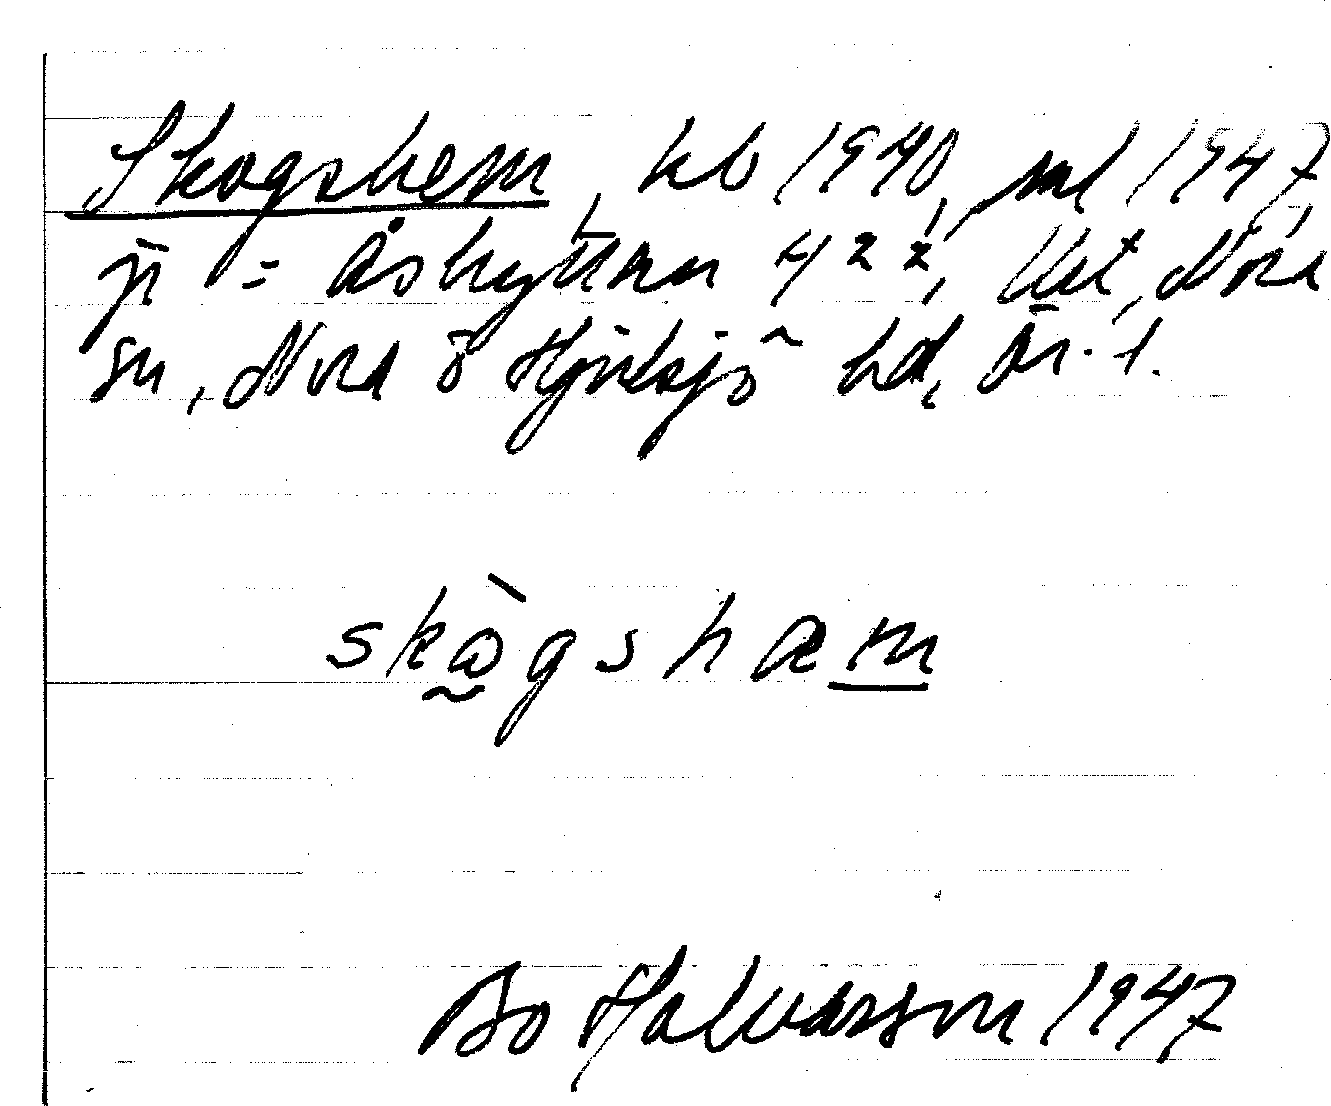 Skogshem, kb 1940, ml 1947,
jr = Åshyttan 4 22, lht, Nora
sn, Nora o Hjulsjö hd, Ör. l.
skògshæm
Bo Halvarsson 1947